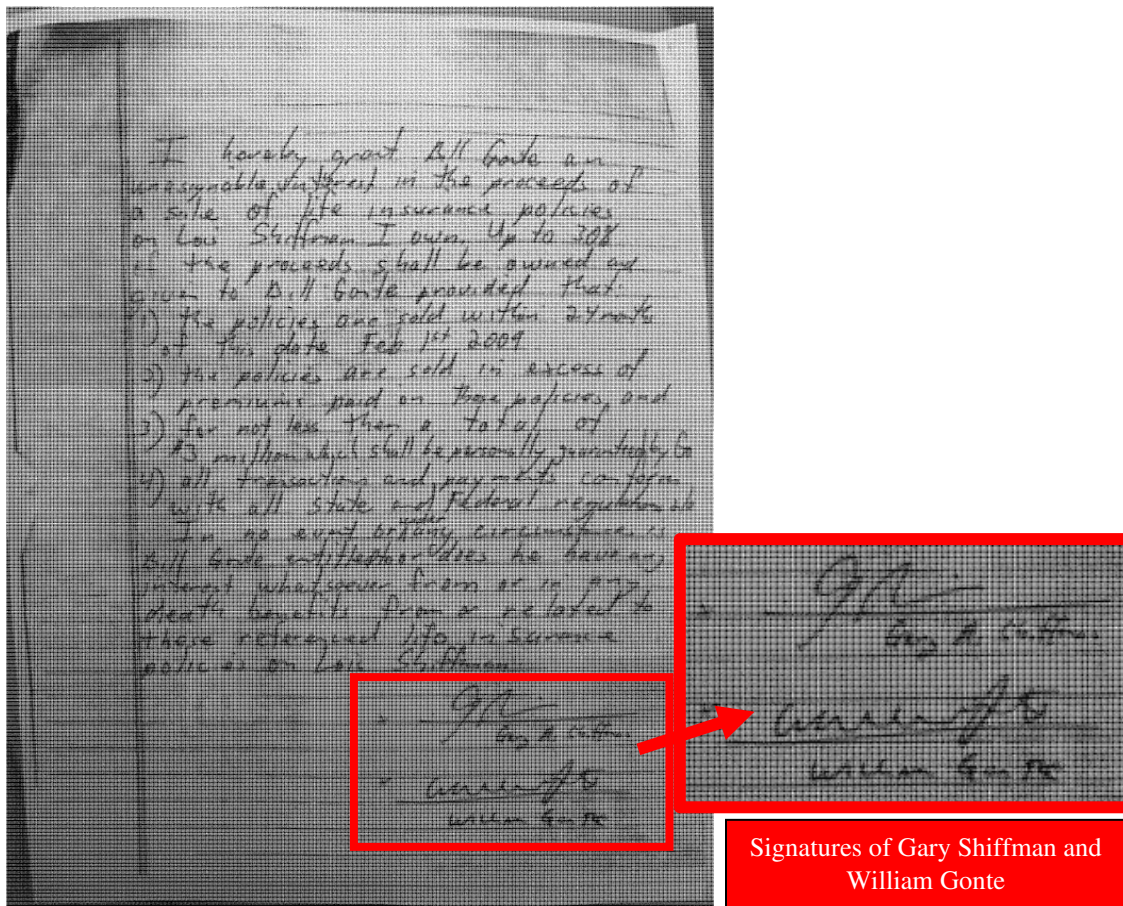 I hereby grant Bill Gonte an
unasignable interest in the proceeds of
a sale of life insurance policies
on Lois Shiffman I own. Up to 30%
of the proceeds shall be owned and
given to Bill Gonte provided that:
1) the policies are sold within 24 months
of this date Feb 1st 2009
2) the policies are sold in excess of
premiums paid on those policies and
3) for not less then a total of
$3 million which shall be personally guaranteed by Go
4) all transactions and payments conform
with all state and Federal regulations
In no event or under any circumstance is
Bill Gonte entitled to nor does he have any
interest whatsoever from or in any
death benefits from or related to
these referenced life insurance
policies on Lois Shiffman
Gary A. Shiffman
William Gonte
Gary A. Shiffman
William Gonte
Signatures of Gary Shiffman and
William Gonte